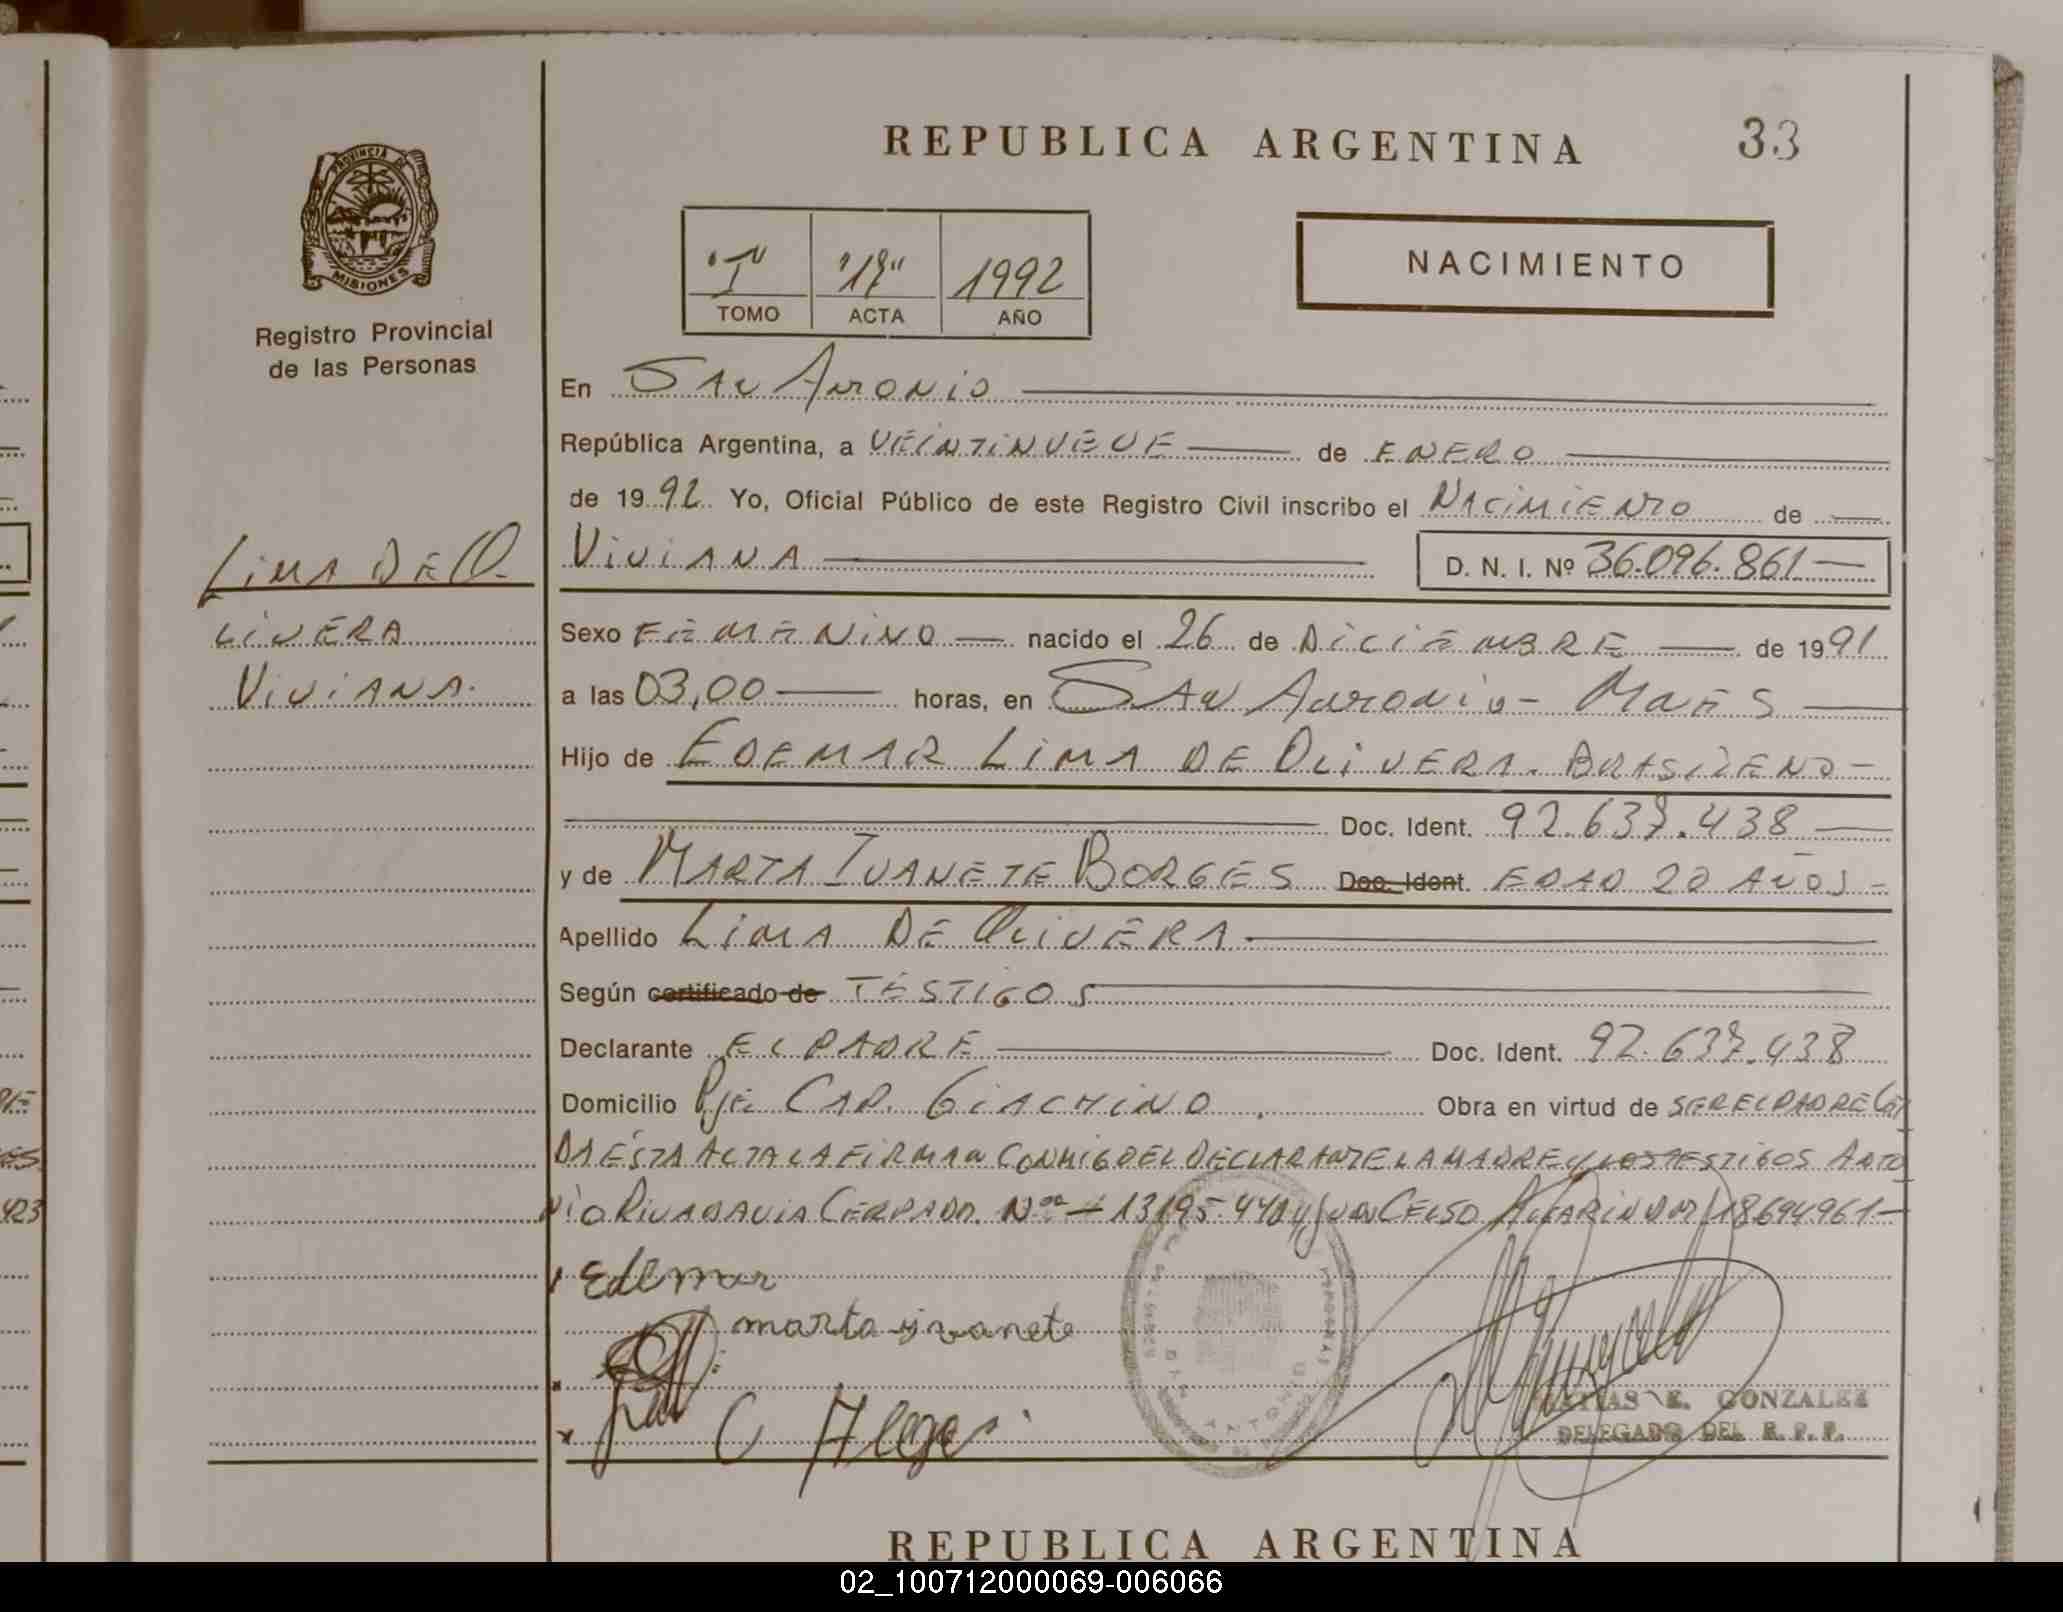 REPUBLICA ARGENTINA
33
PROVINCIA DE
MISIONES
Registro Provincial
de las Personas
"I" "17" 1992
TOMO ACTA AÑO
NACIMIENTO
En San Antonio
República Argentina, a VEINTINUEVE de ENERO
de 1992 Yo, Oficial Público de este Registro Civil inscribo el NACIMIENTO de
VIVIANA
D. N. I. Nº 36.096.861
LIMA DE O
LIVERA
VIVIANA.
Sexo FEMENINO nacido el 26 de DICIEMBRE de 1991
a las 03,00 horas, en SAN ANTONIO - MNES
Hijo de EDEMAR LIMA DE OLIVERA. BRASILENO-
Doc. Ident. 92.637.438
y de MARTA IVANETE BORGES Doc. Ident. EDAD 20 AÑOS -
Apellido LIMA DE OLIVERA
Según certificado de TESTIGOS
Declarante EL PADRE Doc. Ident. 92.637.438
Domicilio Pje CAP. GIACHINO. Obra en virtud de SER EL PADRE LEI
DA ESTA ACTA LA FIRMAN CONMIGO EL DECLARANTE LA MADRE Y LOS TESTIGOS ANTO
NIO RIVADAVIA 13195.440 y JUAN CELSO 18694961-
Edemar
marta ivanete
SAN ANTONIO
E. GONZALEZ
DELEGADO DEL R. P. P.
REPUBLICA ARGENTINA
02_100712000069-006066